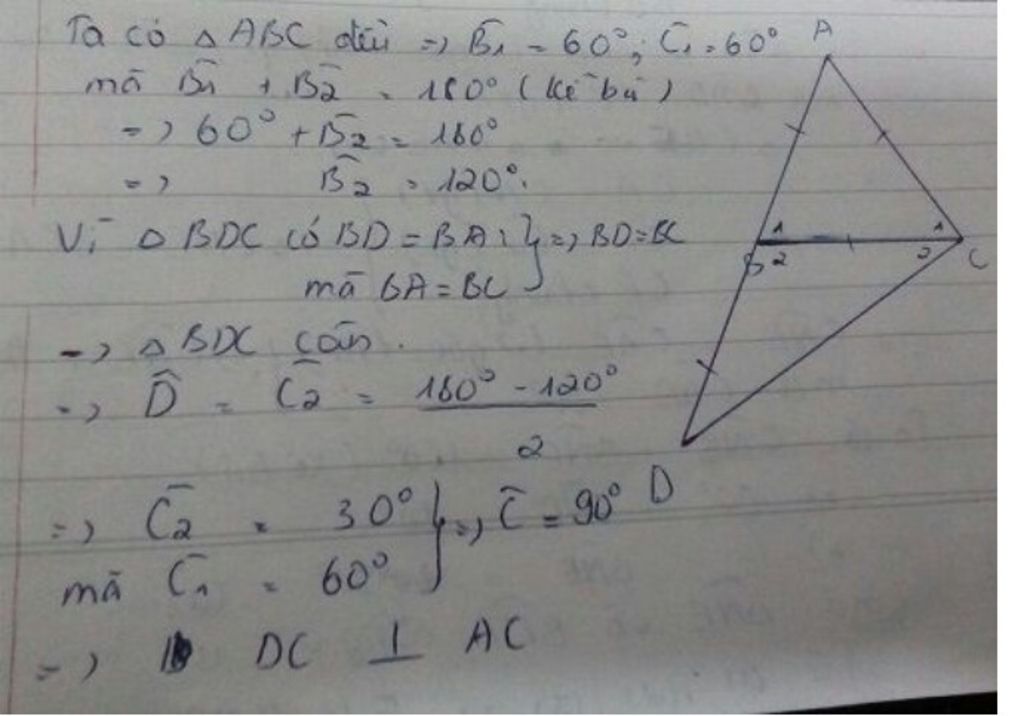 Ta có △ABC đều => B̂₁ = 60°; Ĉ₁ = 60°
mà B̂₁ + B̂₂ = 180° (kề bù)
=> 60° + B̂₂ = 180°
=> B̂₂ = 120°.
Vì △BDC có BD = BA; } => BD = BC
mà BA = BC
=> △BDC cân.
=> D̂ = Ĉ₂ = (180° - 120°) / 2
=> Ĉ₂ = 30° } => Ĉ = 90°
mà Ĉ₁ = 60°
=> DC ⊥ AC
A
1 1
B 2 2 C
D